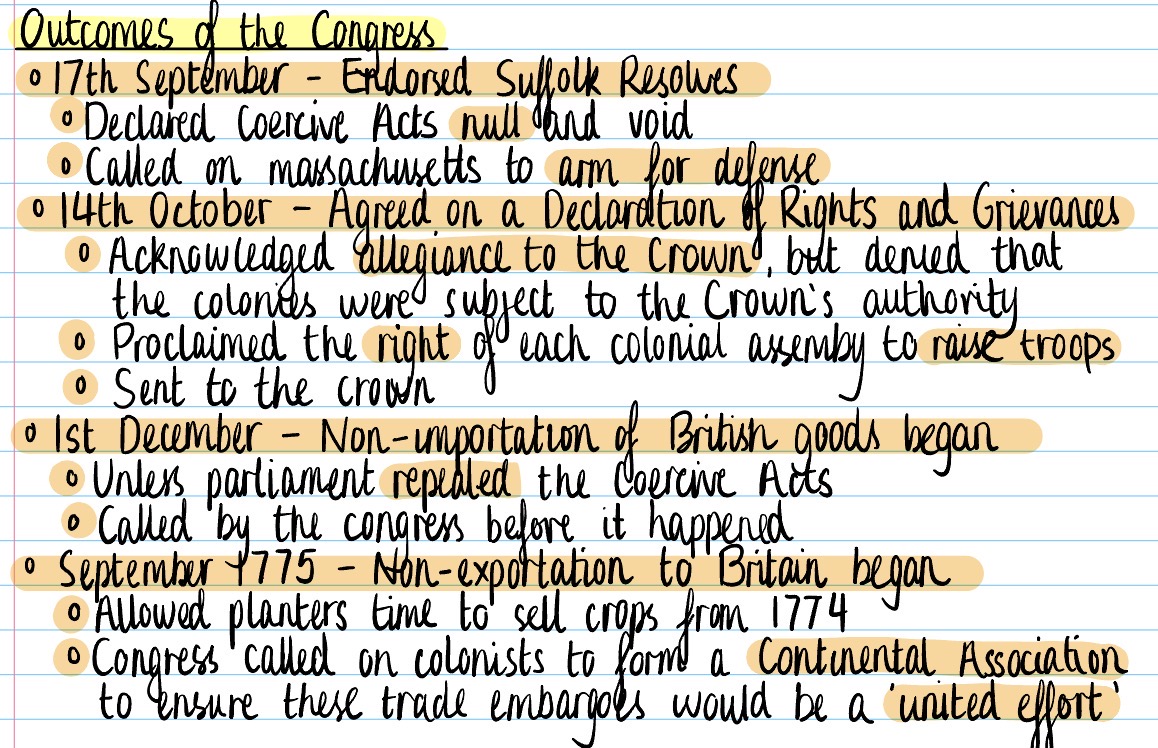 Outcomes of the Congress
o 17th September - Endorsed Suffolk Resolves
o Declared Coercive Acts null and void
o Called on massachusetts to arm for defense
o 14th October - Agreed on a Declaration of Rights and Grievances
o Acknowledged allegiance to the Crown, but denied that
the colonies were subject to the Crown's authority
o Proclaimed the right of each colonial assemby to raise troops
o Sent to the crown
o 1st December - Non-importation of British goods began
o Unless parliament repealed the Coercive Acts
o Called by the congress before it happened
o September 1775 - Non-exportation to Britain began
o Allowed planters time to sell crops from 1774
o Congress called on colonists to form a Continental Association
to ensure these trade embargoes would be a 'united effort'